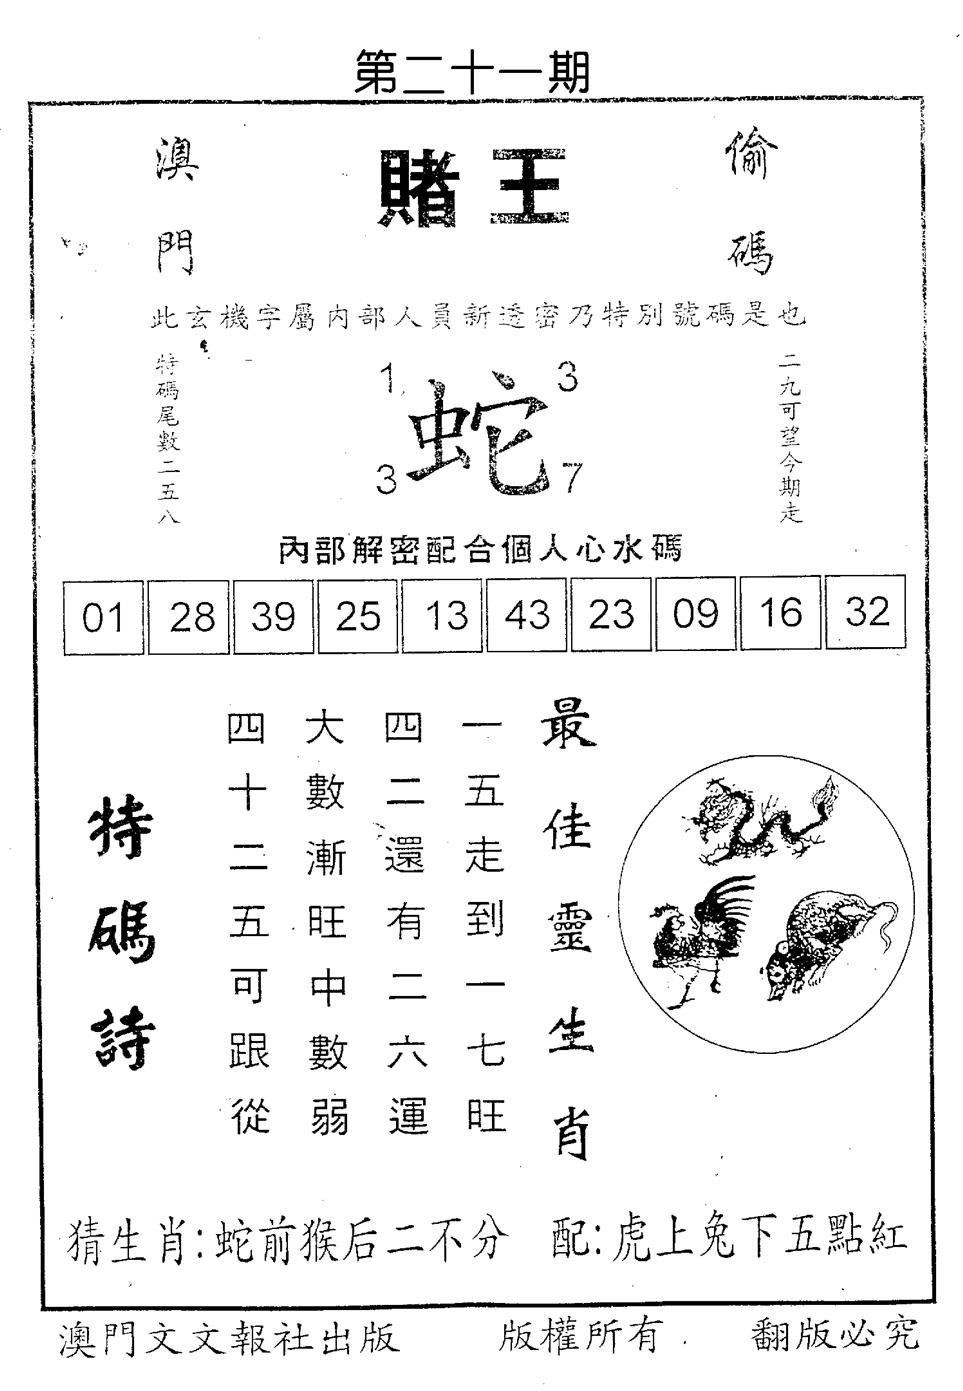 第二十一期
澳門
賭王
偷碼
此玄機字屬內部人員新透密乃特別號碼是也
特碼尾數二五八
1 3
蛇
3 7
二九可望今期走
內部解密配合個人心水碼
01 28 39 25 13 43 23 09 16 32
最佳靈生肖
一五走到一七旺
四二還有二六運
大數漸旺中數弱
四十二五可跟從
特碼詩
猜生肖:蛇前猴后二不分 配:虎上兔下五點紅
澳門文文報社出版 版權所有. 翻版必究